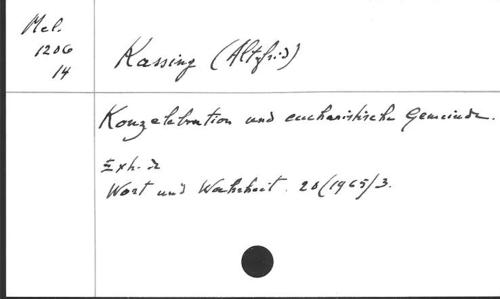 Mel.
1206
14
Kassing (Altfrid)
Konzelebration und eucharistische Gemeinde.
Exh. de
Wort und Wahrheit. 20(1965)3.